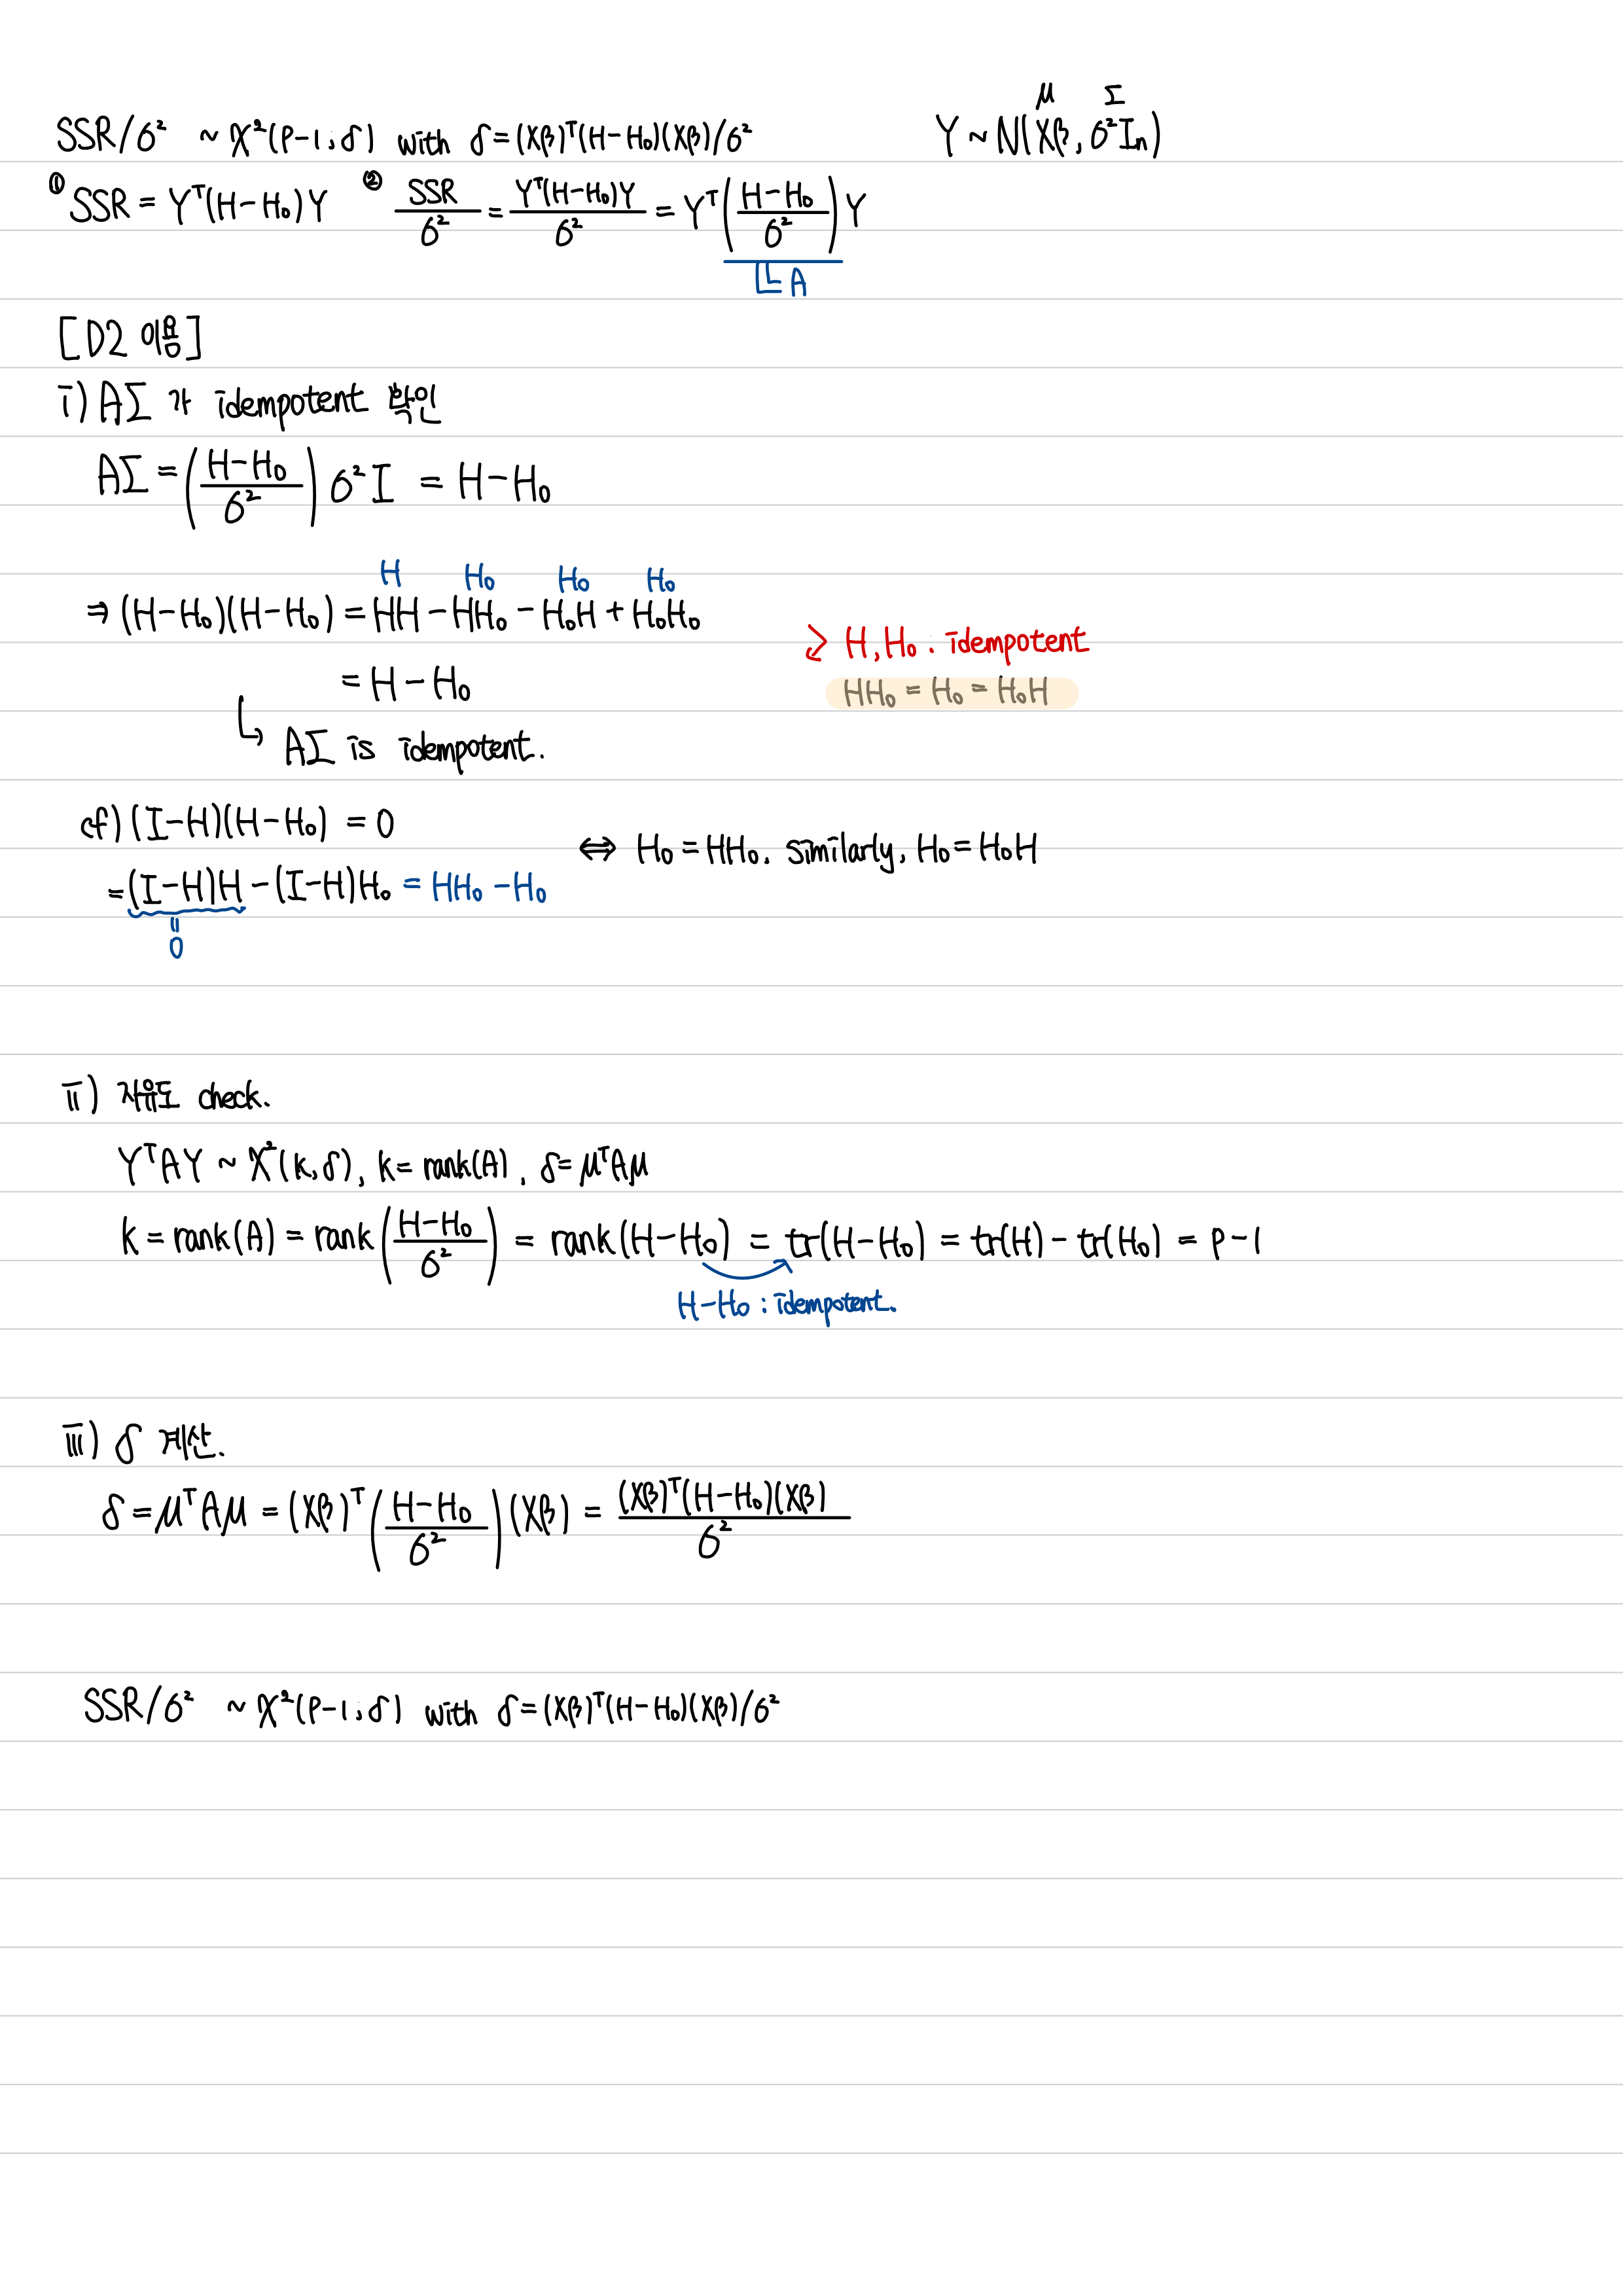 SSR/σ² ~ χ²(P-1, δ) with δ = (Xβ)ᵀ(H-H₀)(Xβ)/σ² Y ~ N(Xβ, σ²Iₙ) μ Σ
① SSR = Yᵀ(H-H₀)Y ② SSR/σ² = Yᵀ(H-H₀)Y/σ² = Yᵀ((H-H₀)/σ²)Y
A
[D2 이용]
i) AΣ 가 idempotent 확인
AΣ = ((H-H₀)/σ²) σ²I = H-H₀
H H₀ H₀ H₀
⇒ (H-H₀)(H-H₀) = HH - HH₀ - H₀H + H₀H₀
H, H₀ : idempotent
= H - H₀
HH₀ = H₀ = H₀H
↳ AΣ is idempotent.
cf) (I-H)(H-H₀) = 0
⇔ H₀ = HH₀. similarly, H₀ = H₀H
= (I-H)H - (I-H)H₀ = HH₀ - H₀
= 0
ii) 자유도 check.
YᵀAY ~ χ²(k, δ), k = rank(A), δ = μᵀAμ
k = rank(A) = rank((H-H₀)/σ²) = rank(H-H₀) = tr(H-H₀) = tr(H) - tr(H₀) = P-1
H-H₀ : idempotent.
iii) δ 계산.
δ = μᵀAμ = (Xβ)ᵀ((H-H₀)/σ²)(Xβ) = (Xβ)ᵀ(H-H₀)(Xβ)/σ²
SSR/σ² ~ χ²(P-1, δ) with δ = (Xβ)ᵀ(H-H₀)(Xβ)/σ²